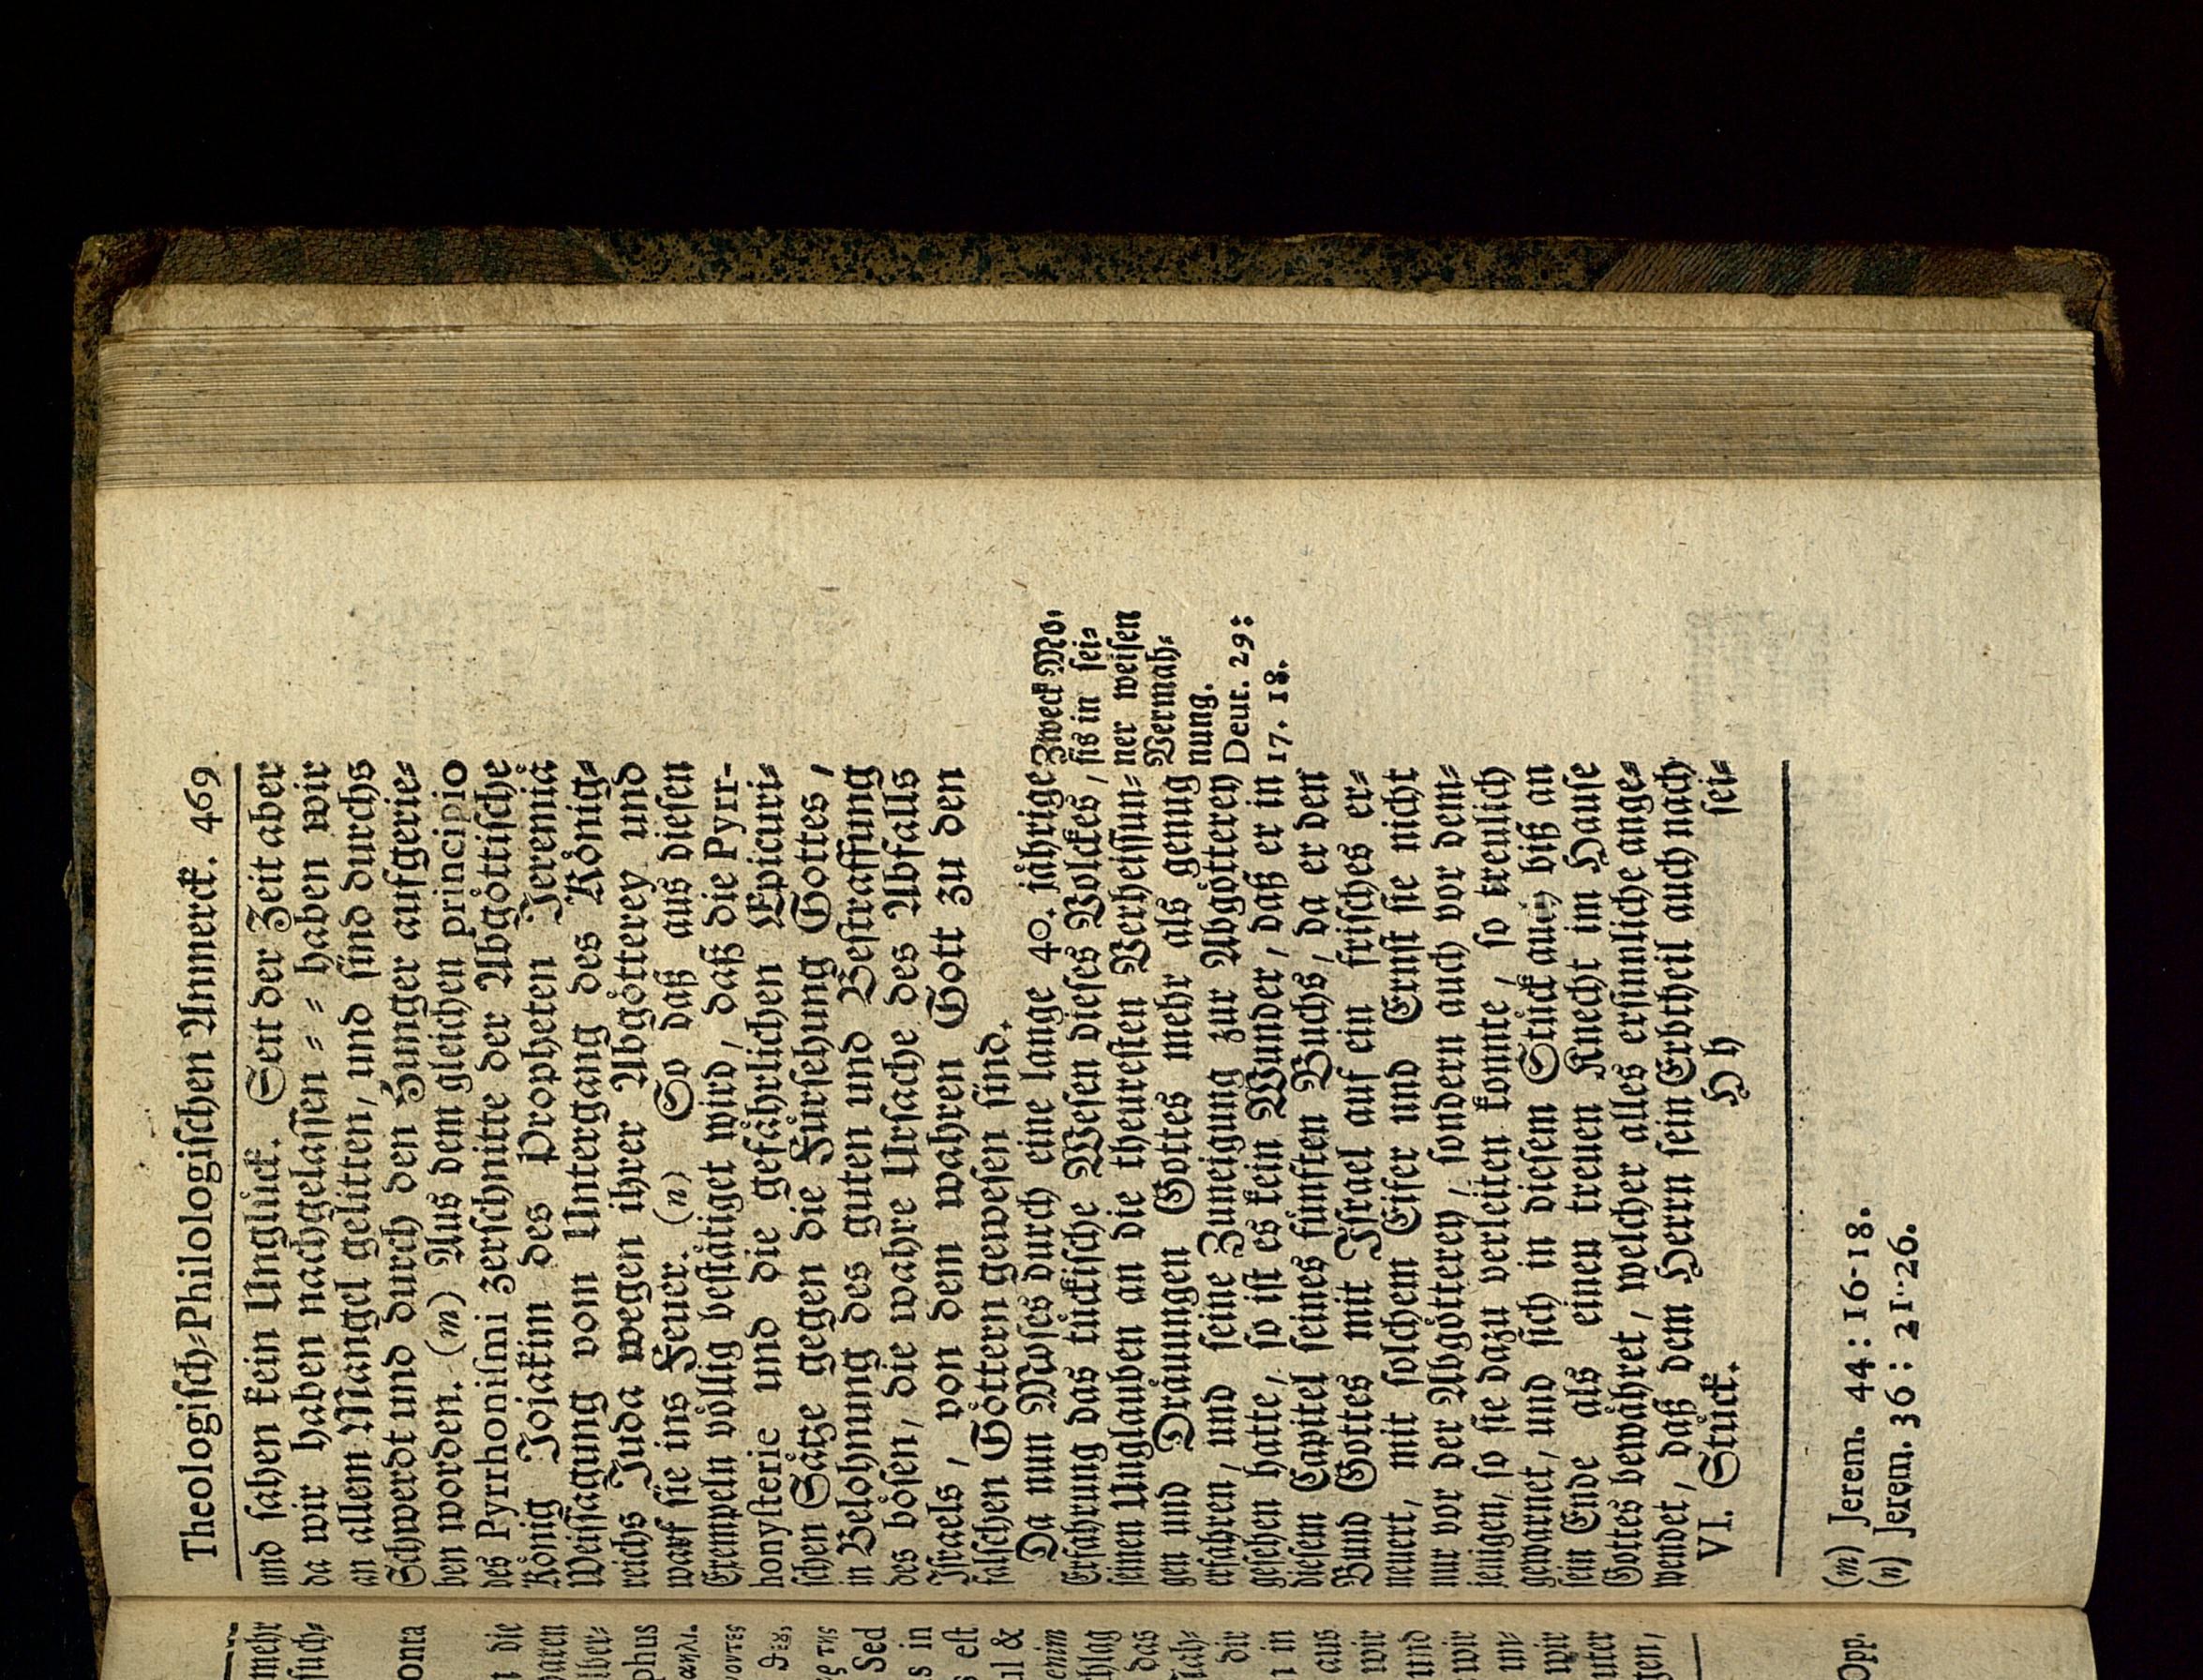 Theologiſch-Philologiſchen Anmerck. 469
und ſahen kein Unglück. Seit der Zeit aber
da wir haben nachgelaſſen - - haben wir
an allem Mangel gelitten, und ſind durchs
Schwerdt und durch den Hunger aufgerie-
ben worden. (m) Aus dem gleichen principio
des Pyrrhoniſmi zerſchnitte der Abgöttiſche
König Jojakim des Propheten Jeremiä
Weiſſagung vom Untergang des König-
reichs Juda wegen ihrer Abgötterey und
warf ſie ins Feuer. (n) So daß aus dieſen
Exempeln völlig beſtätiget wird, daß die Pyrr-
honyſterie und die gefährlichen Epicuri-
ſchen Sätze gegen die Fürſehung Gottes,
in Belohnung des guten und Beſtraffung
des böſen, die wahre Urſache des Abfalls
Iſraels, von dem wahren Gott zu den
falſchen Göttern geweſen ſind.
Da nun Moſes durch eine lange 40. jährige
Erfahrung das tückiſche Weſen dieſes Volckes,
ſeinen Unglauben an die theureſten Verheiſſun-
gen und Dräuungen Gottes mehr als genug
erfahren, und ſeine Zuneigung zur Abgötterey
geſehen hatte, ſo iſt es kein Wunder, daß er in
dieſem Capitel ſeines fünften Buchs, da er den
Bund Gottes mit Iſrael auf ein friſches er-
neuert, mit ſolchem Eifer und Ernſt ſie nicht
nur vor der Abgötterey, ſondern auch vor dem-
jenigen, ſo ſie dazu verleiten konnte, ſo treulich
gewarnet, und ſich in dieſem Stück auch biß an
ſein Ende als einen treuen Knecht im Hauſe
Gottes bewähret, welcher alles erſinnliche ange-
wendet, daß dem Herrn ſein Erbtheil auch nach
VI. Stück. H h ſei-
Zweck Mo-
ſis in ſei-
ner weiſen
Vermah-
nung.
Deut. 29:
17. 18.
(m) Jerem. 44: 16-18.
(n) Jerem. 36: 21-26.
mehr
ſuch-
onta
n die
phus
οντες
ϑεȣ͂,
ς της
Sed
s in
s eſt
ul &
enim
hlag
das
dir
n in
aus
wir
und
wir
un-
wir
gen,
Opp.